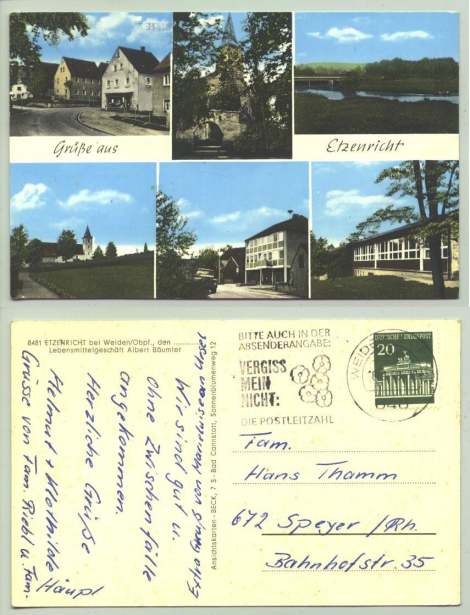 Grüße aus
Etzenricht
8481 ETZENRICHT bei Weiden/Obpf., den
Lebensmittelgeschäft Albert Bäumler
Wir sind gut u.
Ohne Zwischenfälle
angekommen.
Herzliche Grüße
Helmut + Klothilde
Grüsse von Fam. Riedl u. Fam. Häupl
Ansichtskarten - BECK, 7 S - Bad Cannstatt, Sonnenblumenweg 12
BITTE AUCH IN DER
ABSENDERANGABE:
VERGISS
MEIN
NICHT:
DIE POSTLEITZAHL
WEID
DEUTSCHE BUNDESPOST
20
Fam.
Hans Thamm
672 Speyer/Rh.
Bahnhofstr. 35